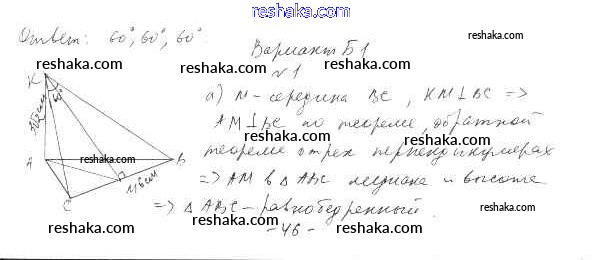 reshaka.com
Ответ: 60°, 60°, 60°.
Вариант Б1
reshaka.com
reshaka.com
№1
K
60°
reshaka.com
а) M - середина BC, KM⊥BC =>
AM⊥BC по теореме, обратной
reshaka.com
reshaka.com
A
reshaka.com
B
теореме о трех перпендикулярах
M 6 см
=> AM в △ ABC медиана и высота
C
reshaka.com
reshaka.com
reshaka.com
=> △ ABC - равнобедренный.
- 46 -
reshaka.com
reshaka.com